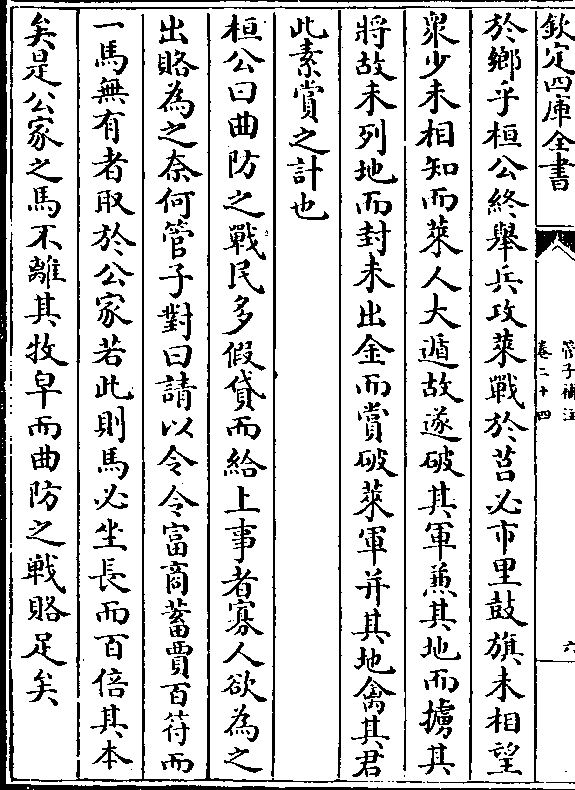 欽定四庫全書
管子補注
卷二十四
六
於鄉乎桓公終舉兵攻萊戰於莒必巿里鼓旗未相望
衆少未相知而萊人大遁故遂破其軍兼其地而擄其
將故未列地而封未出金而賞破萊軍并其地禽其君
此素賞之計也
桓公曰曲防之戰民多假貸而給上事者寡人欲為之
出賂為之奈何管子對曰請以令令富商蓄賈百符而
一馬無有者取於公家若此則馬必坐長而百倍其本
矣是公家之馬不離其牧皁而曲防之戰賂足矣